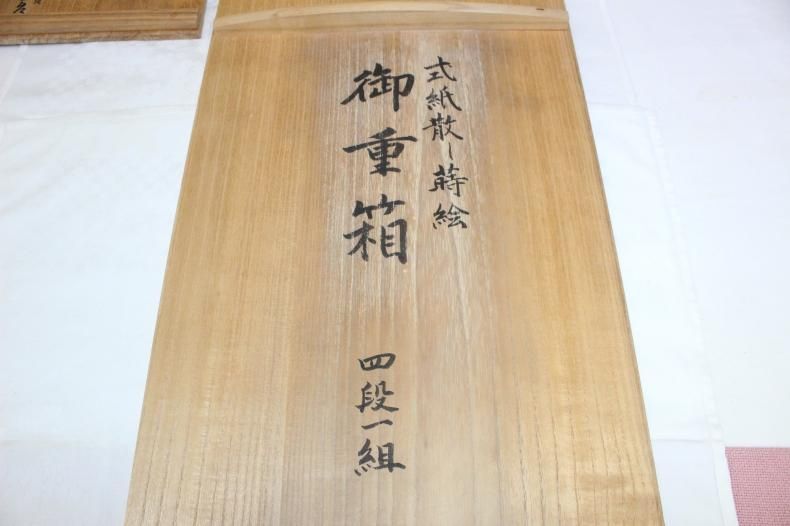 式紙散し蒔絵
御重箱
四段一組